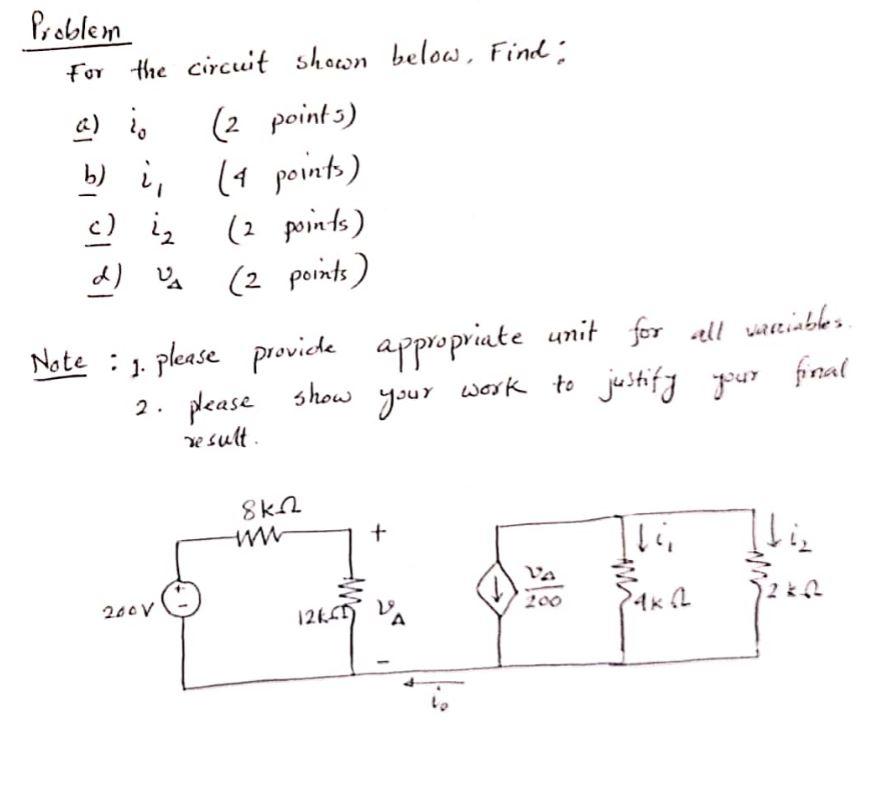 Problem
For the circuit shown below, Find:
a) i₀ (2 points)
b) i₁ (4 points)
c) i₂ (2 points)
d) v_Δ (2 points)
Note : 1. please provide appropriate unit for all variables.
2. please show your work to justify your final
result.
8kΩ
+
200V
+
-
12kΩ
v_Δ
-
v_Δ/200
i₁
4kΩ
i₂
2kΩ
i₀